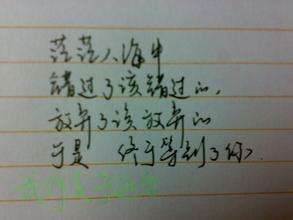 茫茫人海中
错过了该错过的,
放弃了该放弃的
于是 终于等到了你.
我们